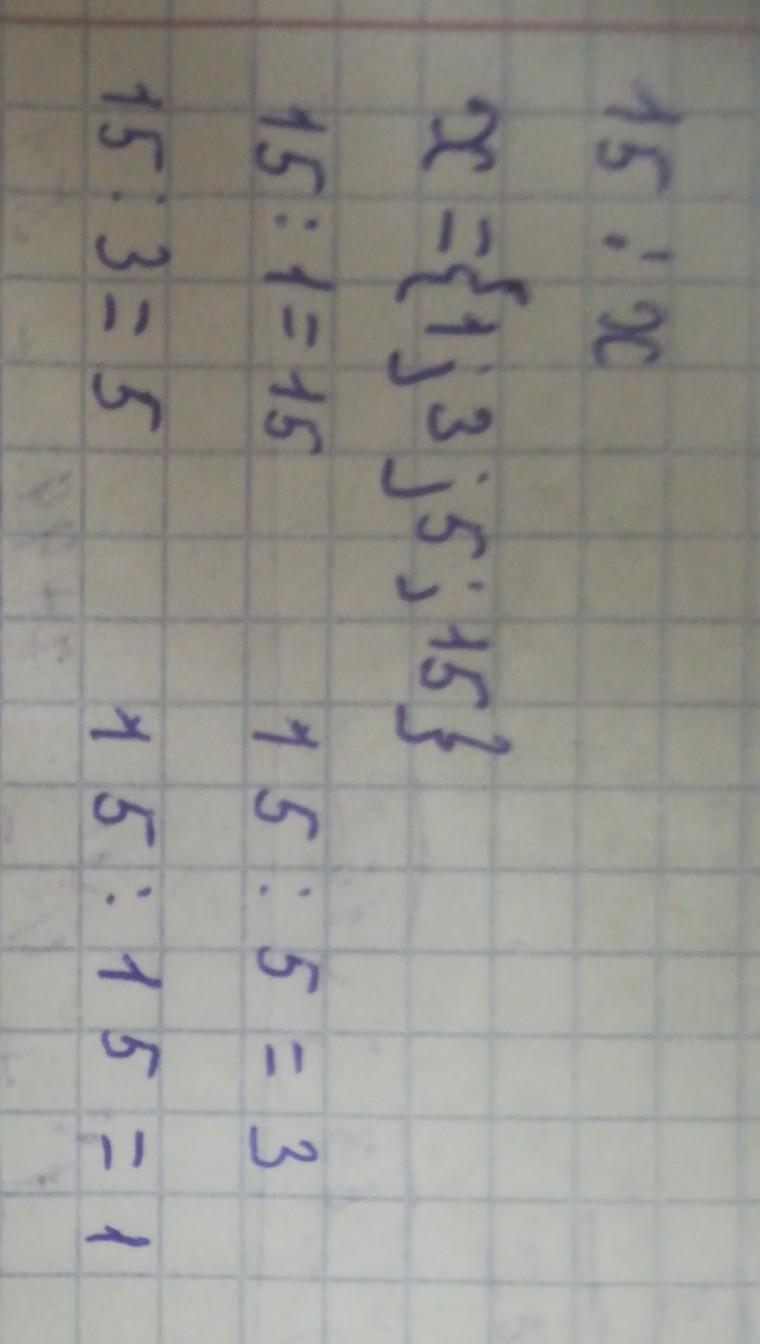 15 : x
x = {1; 3; 5; 15}
15 : 1 = 15 15 : 5 = 3
15 : 3 = 5 15 : 15 = 1